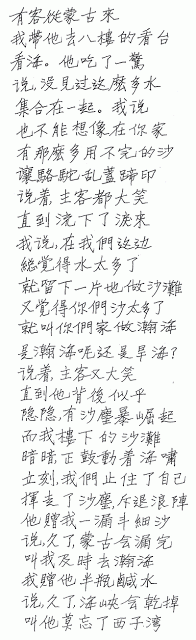 有客從蒙古來
我帶他去八樓的看台
看海。他吃了一驚
說，沒見过這麼多水
集合在一起。我說
也不能想像在你家
有那麼多用不完的沙
讓駱駝亂蓋蹄印
說着，主客都大笑
直到流下了淚來
我說，在我們這边
總覺得水太多了
就留下一片地做沙灘
又覺得你們沙太多了
就叫你們家做瀚海
是瀚海呢还是旱海？
說着，主客又大笑
直到他背後似乎
隐隐，有沙塵暴崛起
而我樓下的沙灘
暗暗，正鼓動着海嘯
立刻，我們止住了自己
揮走了沙塵，斥退浪陣
他贈我一漏斗細沙
說，久了，蒙古会漏完
叫我及時去瀚海
我贈他半瓶鹹水
說，久了，海峽会乾掉
叫他莫忘了西子湾